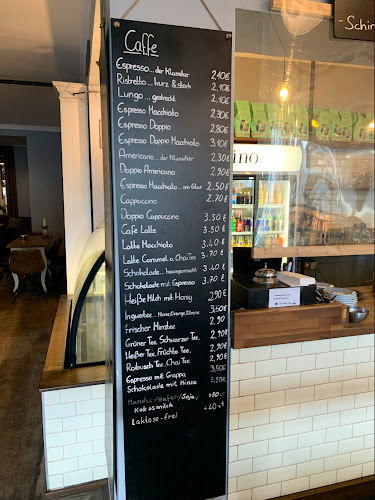 Caffe
Espresso...der Klassiker 2,10€
Ristretto... kurz & stark 2,10€
Lungo ... gestreckt 2,10€
Espresso Macchiato 2,30€
Espresso Doppio 2,80€
Espresso Doppio Macchiato 3,10€
Americano... der Klassiker 2,30€
Doppio Americano 2,90€
Espresso Macchiato ...im Glas 2.50€
Cappuccino 2.70€
Doppio Cappuccino 3.50€
Cafe Latte 3.50€
Latte Macchiato 3.40€
Latte Caramel o. Chai Tee 3.70€
Schokolade... hausgemacht 3.40€
Schokolade mit Espresso 3.70€
Heiße Milch mit Honig 2.90€
Ingwertee... Minze, Orange, Zitrone 3,50€
Frischer Minztee 2.90
Grüner Tee, Schwarzer Tee, 2.90
Weißer Tee, Früchte Tee, 2.90
Roibusch Tee, Chai Tee 2.90
Espresso mit Grappa 3,50€
Schokolade mit Minze 3.50€
Mandel-/Hafer-/Soja-/
Kokosmilch
Laktose-frei
ino
-Schin